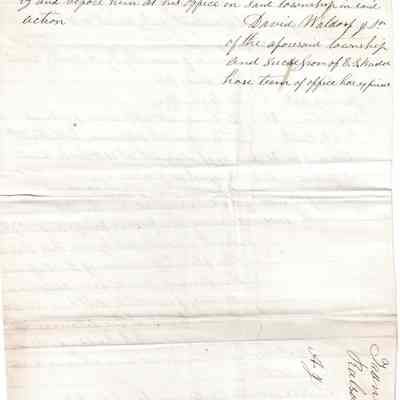 by and before him at his office in said township in said
action
David Waldorf J P
of the aforesaid township
and successor of E S
hose term of office has expired
A J